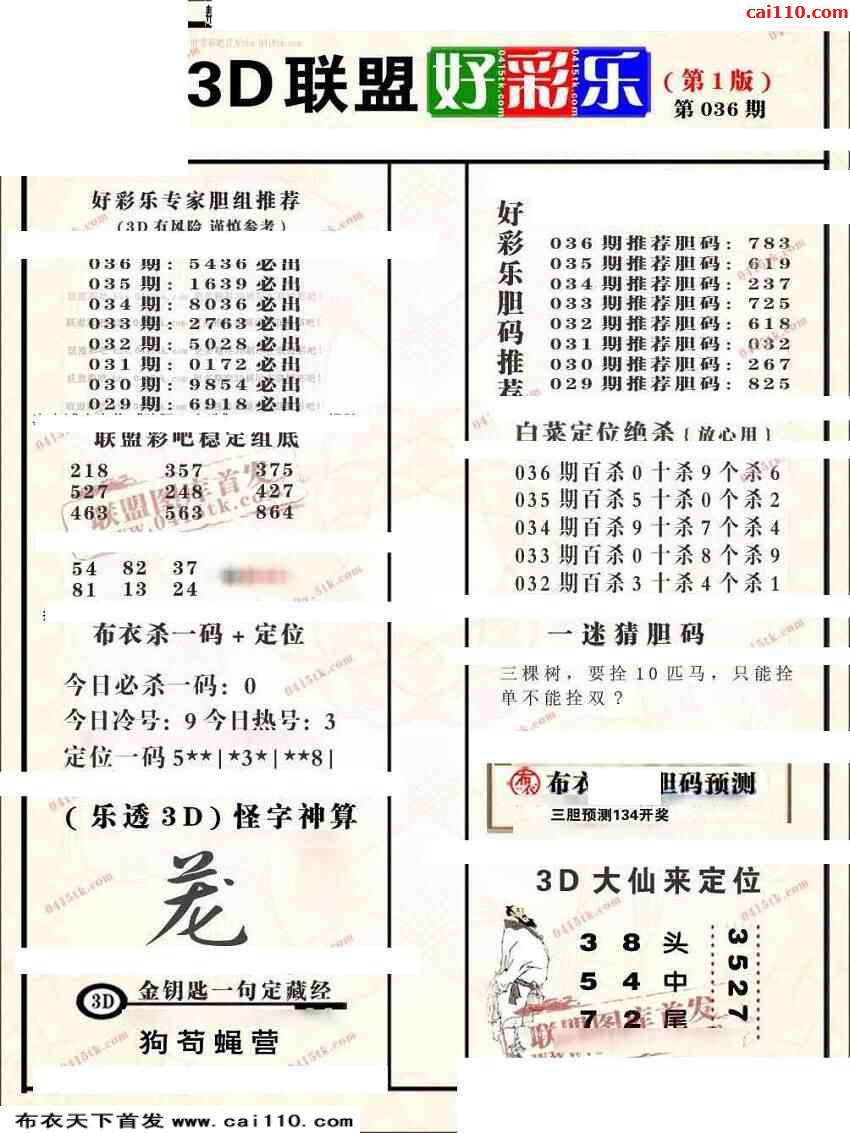 cai110.com
3D联盟好彩乐
(第1版)
第036期
好彩乐专家胆组推荐
(3D有风险 谨慎参考)
036期: 5436必出
035期: 1639必出
034期: 8036必出
033期: 2763必出
032期: 5028必出
031期: 0172必出
030期: 9854必出
029期: 6918必出
联盟彩吧稳定组底
218 357 375
527 248 427
463 563 864
54 82 37
81 13 24
布衣杀一码+定位
今日必杀一码: 0
今日冷号: 9 今日热号: 3
定位一码 5**|*3*|**8|
(乐透3D)怪字神算
3D 金钥匙一句定藏经
狗苟蝇营
好彩乐胆码推荐
036期推荐胆码: 783
035期推荐胆码: 619
034期推荐胆码: 237
033期推荐胆码: 725
032期推荐胆码: 618
031期推荐胆码: 032
030期推荐胆码: 267
029期推荐胆码: 825
白菜定位绝杀 (放心用)
036期百杀0十杀9个杀6
035期百杀5十杀0个杀2
034期百杀9十杀7个杀4
033期百杀0十杀8个杀9
032期百杀3十杀4个杀1
一迷猜胆码
三棵树，要拴10匹马，只能拴
单不能拴双?
布衣 胆码预测
三胆预测134开奖
3D大仙来定位
3 8 头
5 4 中
7 2 尾
3527
联盟图库首发
www.0415tk.com
布衣天下首发 www.cai110.com